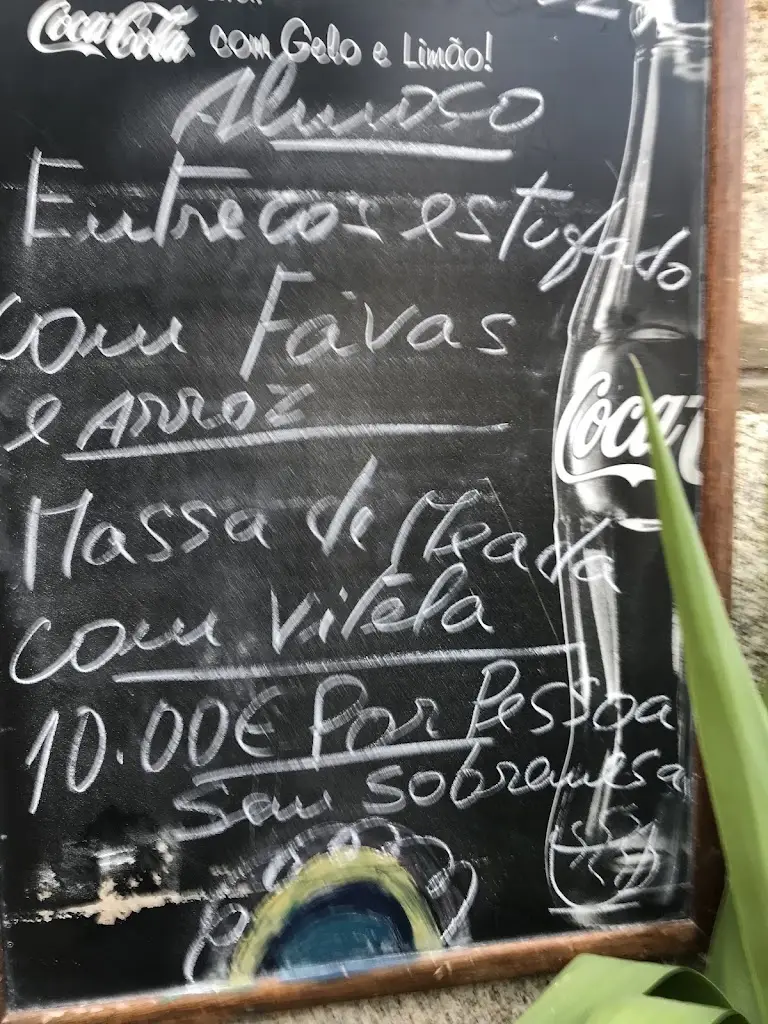 Coca-Cola com Gelo e Limão!
Almoço
Entrecos estufado
com Favas
e Arroz
Massa de Meada
com vitéla
10.00€ Por Pessoa
sem sobremesa
Coca-C